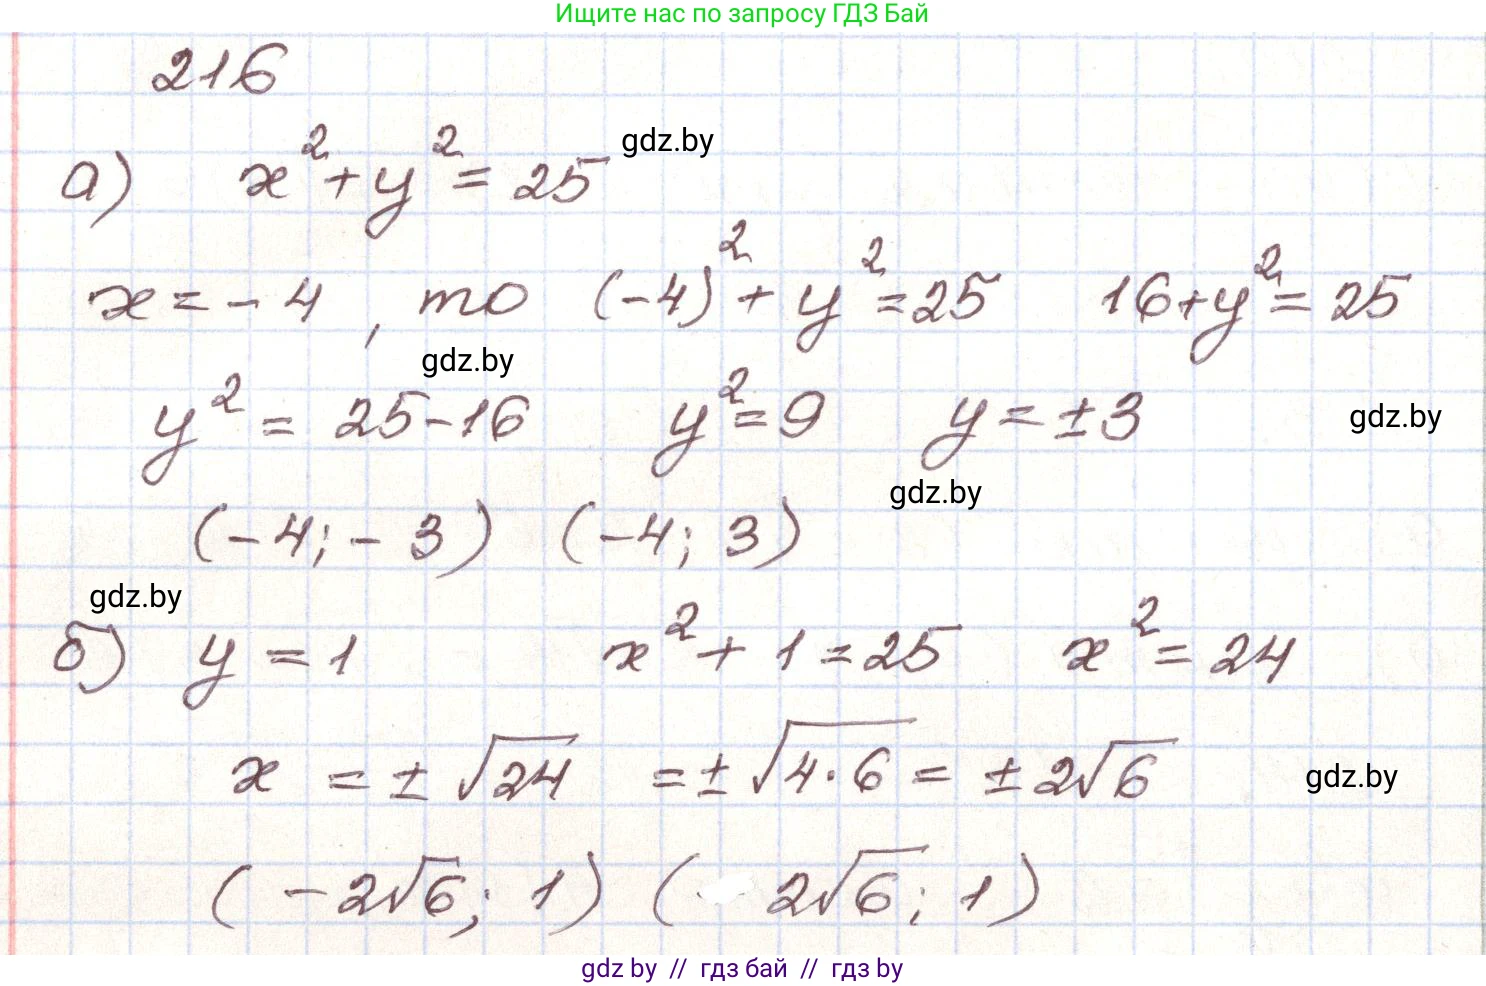 Ищите нас по запросу ГДЗ Бай
216
а) x² + y² = 25 gdz.by
x = - 4, то (-4)² + y² = 25 16 + y² = 25
gdz.by
y² = 25 - 16 y² = 9 y = ± 3 gdz.by
gdz.by
(-4; - 3) (-4; 3)
gdz.by
б) y = 1 x² + 1 = 25 x² = 24
x = ± √24 = ± √4·6 = ± 2√6 gdz.by
(- 2√6; 1) ( 2√6; 1)
gdz by // гдз бай // гдз by